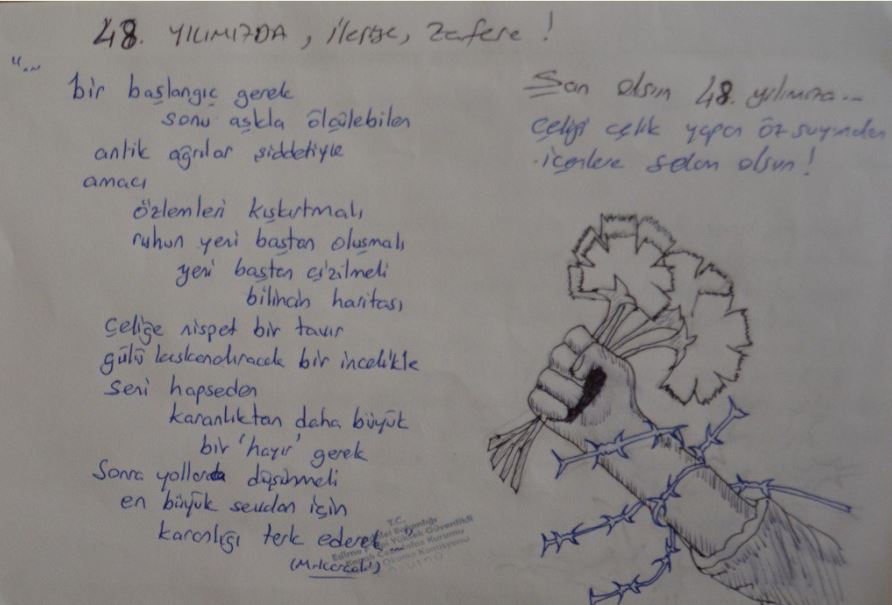 48. YILIMIZDA, ileriye, zafere!
"...
bir başlangıç gerek
sonu aşkla ölçülebilen
antik ağrılar şiddetiyle
amacı
özlemleri kışkırtmalı
ruhun yeni baştan oluşmalı
yeni baştan çizilmeli
bilincin haritası
Çeliğe nispet bir tavır
gülü kıskandıracak bir incelikle
Seni hapseden
karanlıktan daha büyük
bir 'hayır' gerek
Sonra yollara düşülmeli
en büyük sevdan için
karanlığı terk ederek..."
Şan olsun 48. yılımıza...
Çeliği çelik yapan öz suyundan
içenlere selam olsun!
T.C.
Adalet Bakanlığı
Edirne Yüksek Güvenlikli
Ceza İnfaz Kurumu
Okuma Komisyonu